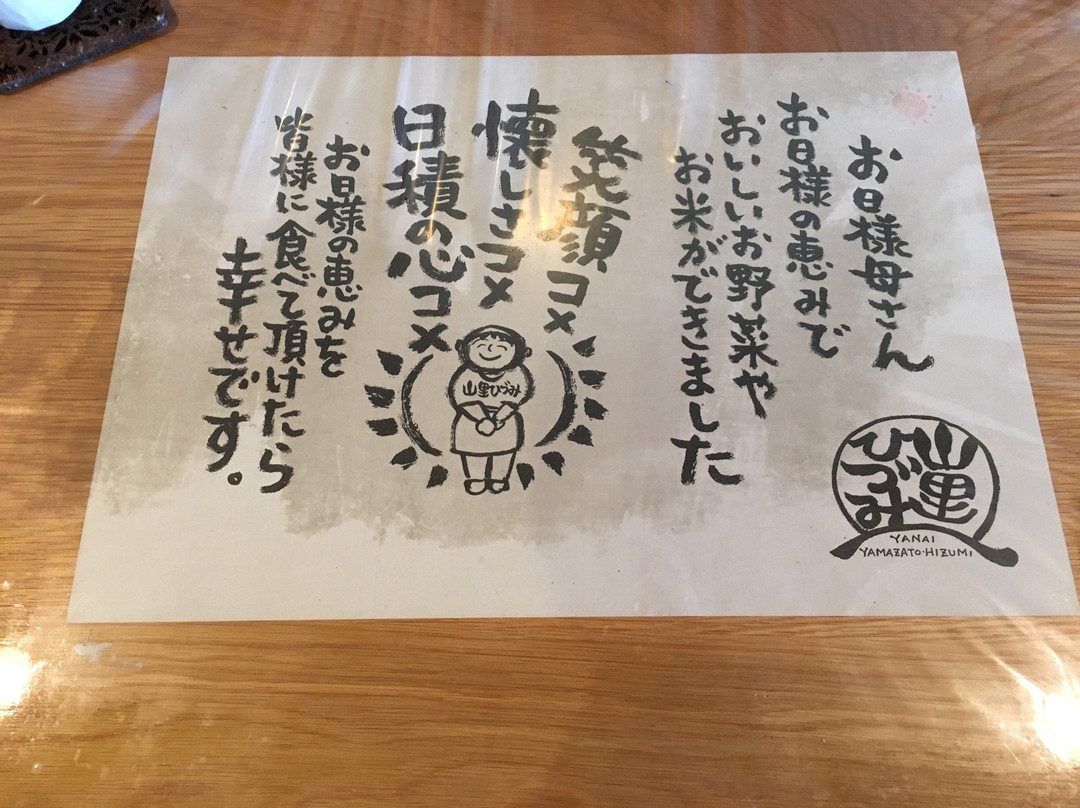 お日様母さん
お日様の恵みで
おいしいお野菜や
お米ができました
笑顔コメ
懐しさコメ
日積の心コメ
お日様の恵みを
皆様に食べて頂けたら
幸せです。
山里ひづみ
山里
ひづみ
YANAI
YAMAZATO・HIZUMI